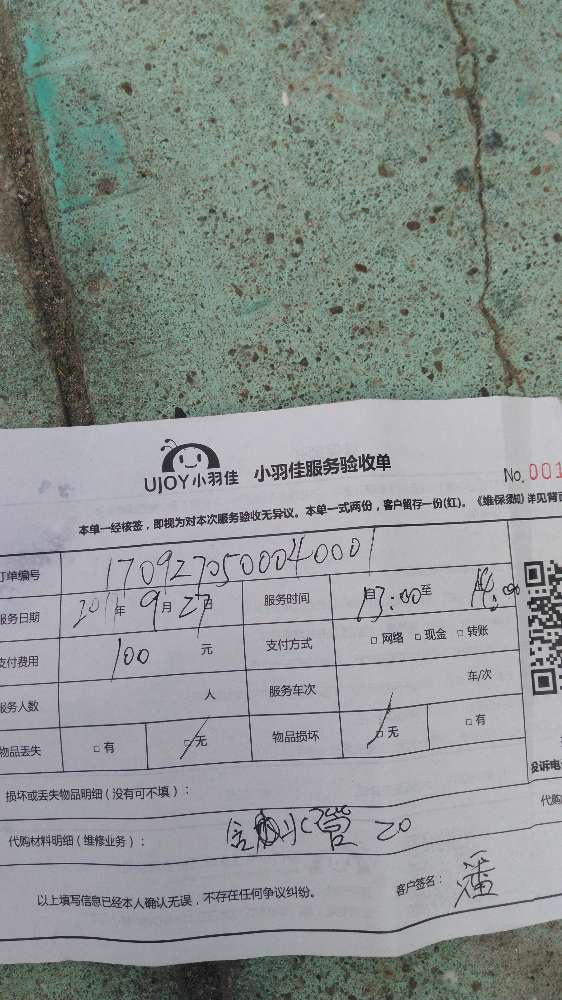 UJOY小羽佳 小羽佳服务验收单
No. 001
本单一经核签，即视为对本次服务验收无异议。本单一式两份，客户留存一份(红)。《维保须知》详见背面
订单编号 1709270500040001
服务日期 年 9 月 27 日 服务时间 自 13:00 至 14:00
支付费用 100 元 支付方式 □ 网络 □ 现金 □ 转账
服务人数 人 服务车次 车/次
物品丢失 □ 有 □ 无 物品损坏 □ 无 □ 有
投诉电
损坏或丢失物品明细（没有可不填）：
代购
代购材料明细（维修业务）： 水管 20
以上填写信息已经本人确认无误，不存在任何争议纠纷。 客户签名： 潘